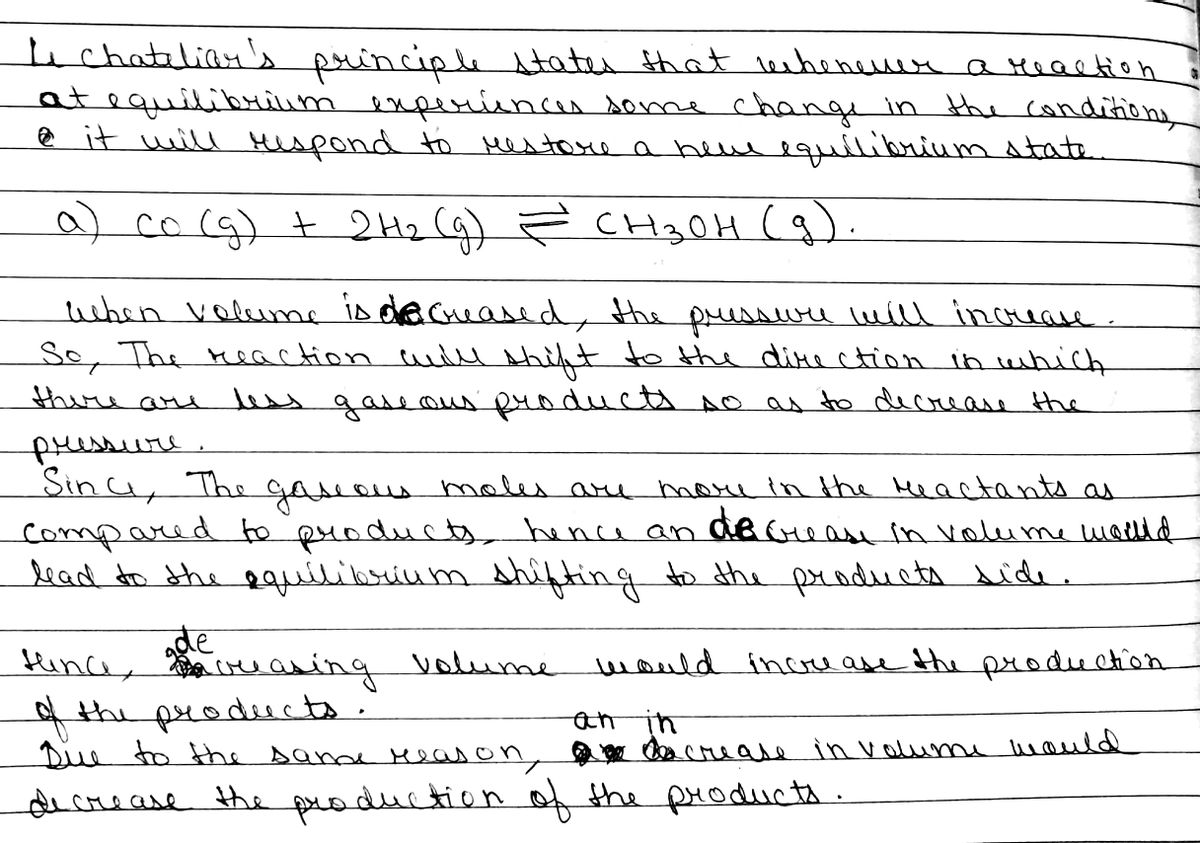 Le chateliar's principle states that whenever a reaction
at equilibrium experiences some change in the conditions,
it will respond to restore a new equilibrium state.
a) CO (g) + 2H2 (g) ⇌ CH3OH (g).
when volume is decreased, the pressure will increase.
So, The reaction will shift to the direction in which
there are less gaseous products so as to decrease the
pressure.
Since, The gaseous moles are more in the reactants as
compared to products, hence an decrease in volume would
lead to the equilibrium shifting to the products side.
Hence, decreasing volume would increase the production
of the products.
Due to the same reason, an increase in volume would
decrease the production of the products.